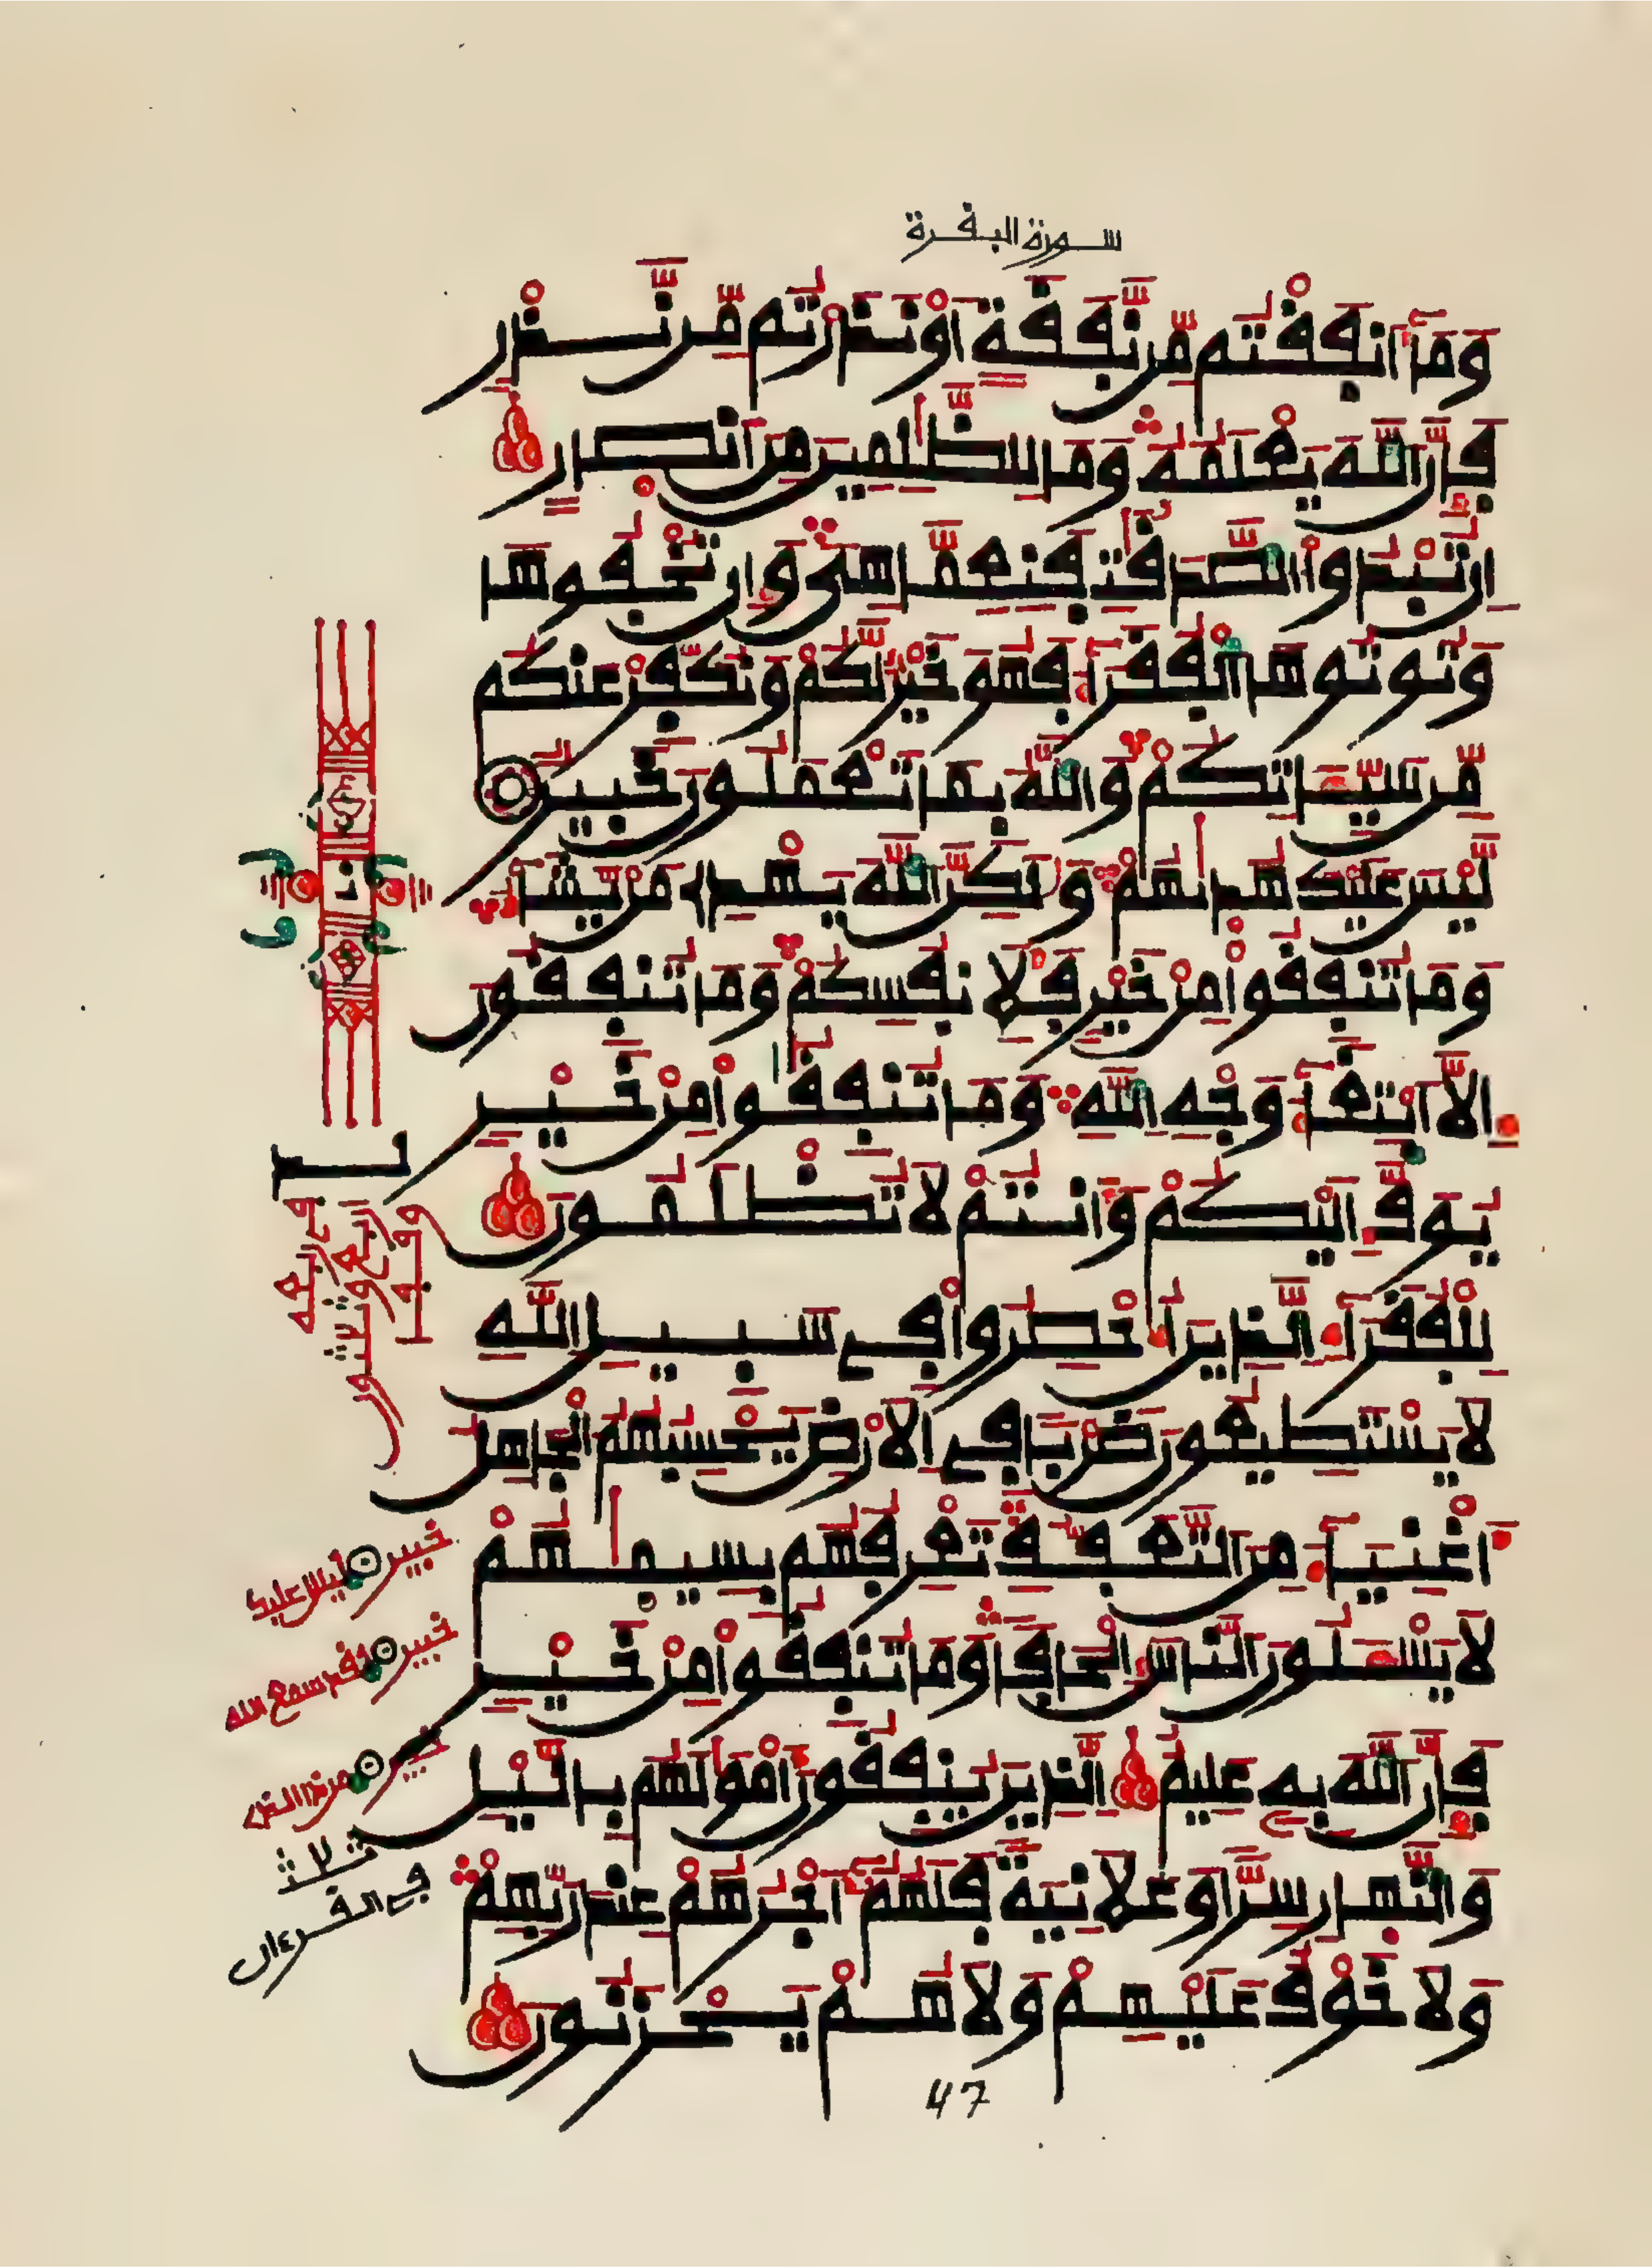 سورة البقرة
وَمَآ أَنفَقْتُم مِّن نَّفَقَةٍ أَوْ نَذَرْتُم مِّن نَّذْرٍ
فَإِنَّ اللَّهَ يَعْلَمُهُ وَمَا لِلظَّٰلِمِينَ مِنْ أَنصَارٍ
إِن تُبْدُوا۟ الصَّدَقَٰتِ فَنِعِمَّا هِىَ وَإِن تُخْفُوهَا
وَتُوتُوهَا الْفُقَرَآءَ فَهُوَ خَيْرٌ لَّكُمْ وَنُكَفِّرْ عَنكُم
مِّن سَيِّـَٔاتِكُمْ وَاللَّهُ بِمَا تَعْمَلُونَ خَبِيرٌ
لَّيْسَ عَلَيْكَ هُدَىٰهُمْ وَلَٰكِنَّ اللَّهَ يَهْدِے مَنْ يَّشَآءُ
وَمَا تُنفِقُوا۟ مِنْ خَيْرٍ فَلِأَنفُسِكُمْ وَمَا تُنفِقُونَ
إِلَّا ابْتِغَآءَ وَجْهِ اللَّهِ وَمَا تُنفِقُوا۟ مِنْ خَيْرٍ
يُوَفَّ إِلَيْكُمْ وَأَنتُمْ لَا تُظْلَمُونَ
لِلْفُقَرَآءِ الَّذِينَ أُحْصِرُوا۟ فِے سَبِيلِ اللَّهِ
لَا يَسْتَطِيعُونَ ضَرْبًا فِے الْأَرْضِ يَحْسِبُهُمُ الْجَاهِلُ
أَغْنِيَآءَ مِنَ التَّعَفُّفِ تَعْرِفُهُم بِسِيمَٰهُمْ
لَا يَسْـَٔلُونَ النَّاسَ إِلْحَافًا وَمَا تُنفِقُوا۟ مِنْ خَيْرٍ
فَإِنَّ اللَّهَ بِهِ عَلِيمٌ الَّذِينَ يُنفِقُونَ أَمْوَٰلَهُم بِالَّيْلِ
وَالنَّهَارِ سِرًّا وَعَلَانِيَةً فَلَهُمْ أَجْرُهُمْ عِندَ رَبِّهِمْ
وَلَا خَوْفٌ عَلَيْهِمْ وَلَا هُمْ يَحْزَنُونَ
خبير ليس عليك
خبير لقد سمع الله
خبير
ثلاث
في القرءان
47